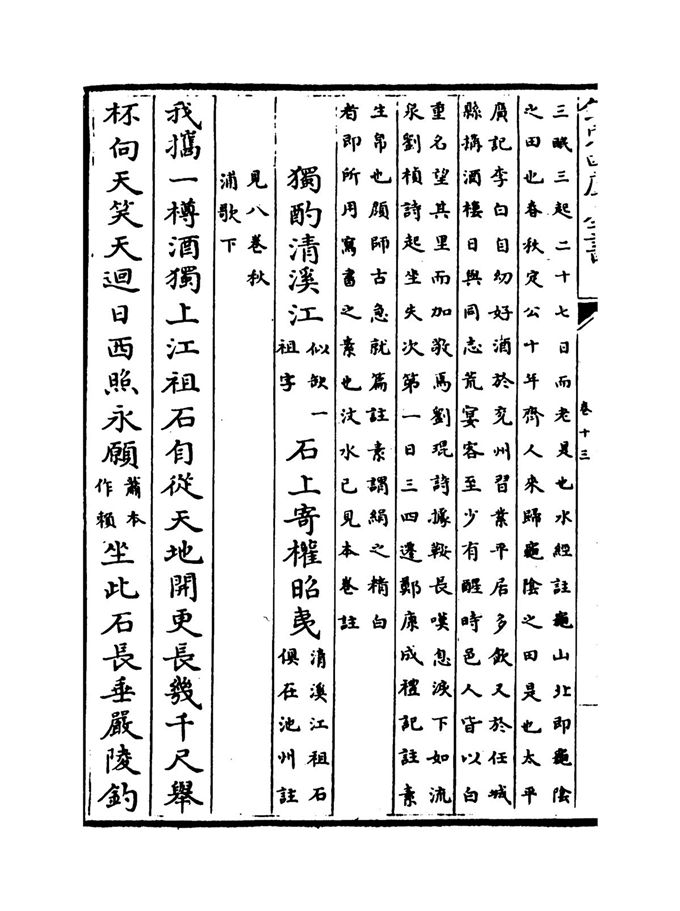 卷十三
三眠三起二十七日而老是也水經註龜山北即龜隂
之田也春秋定公十年齊人來歸龜隂之田是也太平
廣記李白自幼好酒於兖州習業平居多飲又於任城
縣搆酒樓日與同志荒宴客至少有醒時邑人皆以白
重名望其里而加敬焉劉琨詩據鞍長嘆息淚下如流
泉劉楨詩起坐失次第一日三四遷鄭康成禮記註素
生帛也顔師古急就篇註素謂絹之精白
者即所用寫書之素也汶水已見本卷註
獨酌清溪江似缺一祖字石上寄權昭夷清溪江祖石俱在池州註
見八卷秋
浦歌下
我攜一樽酒獨上江祖石自從天地開更長幾千尺舉
杯向天笑天迴日西照永願蕭本作頼坐此石長垂嚴陵釣